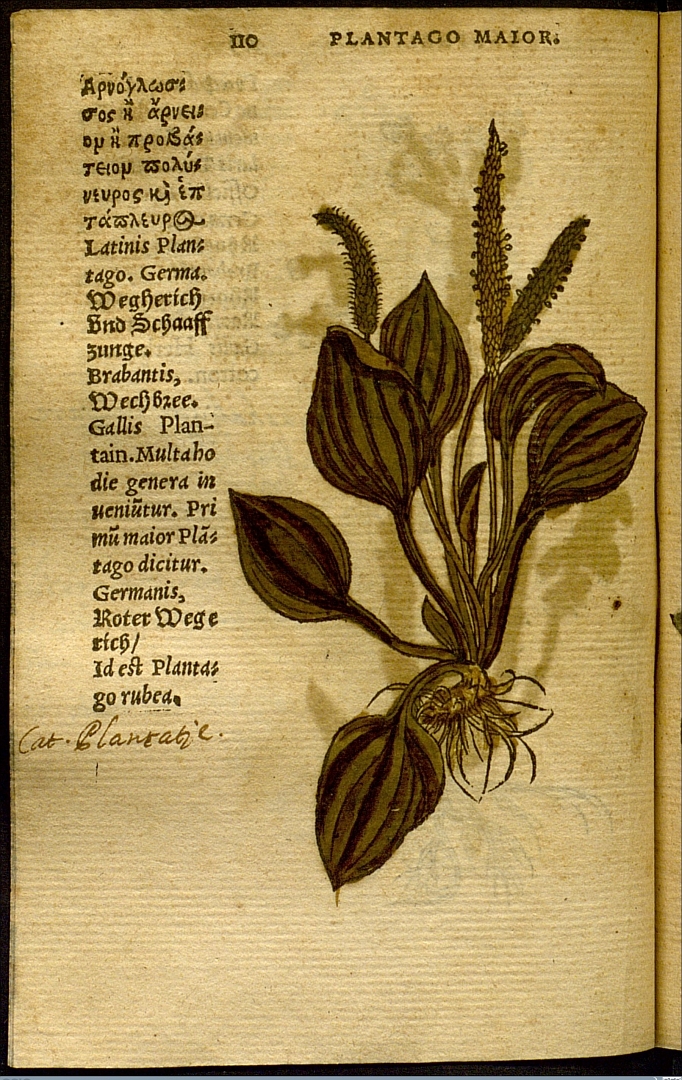 110 PLANTAGO MAIOR.
Ἀρνόγλωσ⸗
σος ἢ ἄρνει⸗
ομ ἢ προβά⸗
τειομ πολύ⸗
νευρος κὶ ἑπ
τάπλευρος
Latinis Plan⸗
tago. Germa.
Wegherich
Vnd Schaaff
zunge.
Brabantis,
Wechbree.
Gallis Plan-
tain. Multa ho
die genera in
ueniũtur. Pri
mũ maior Plã⸗
tago dicitur.
Germanis,
Roter Wege
rich/
Id est Planta⸗
go rubea.
Cat. Plantatje.